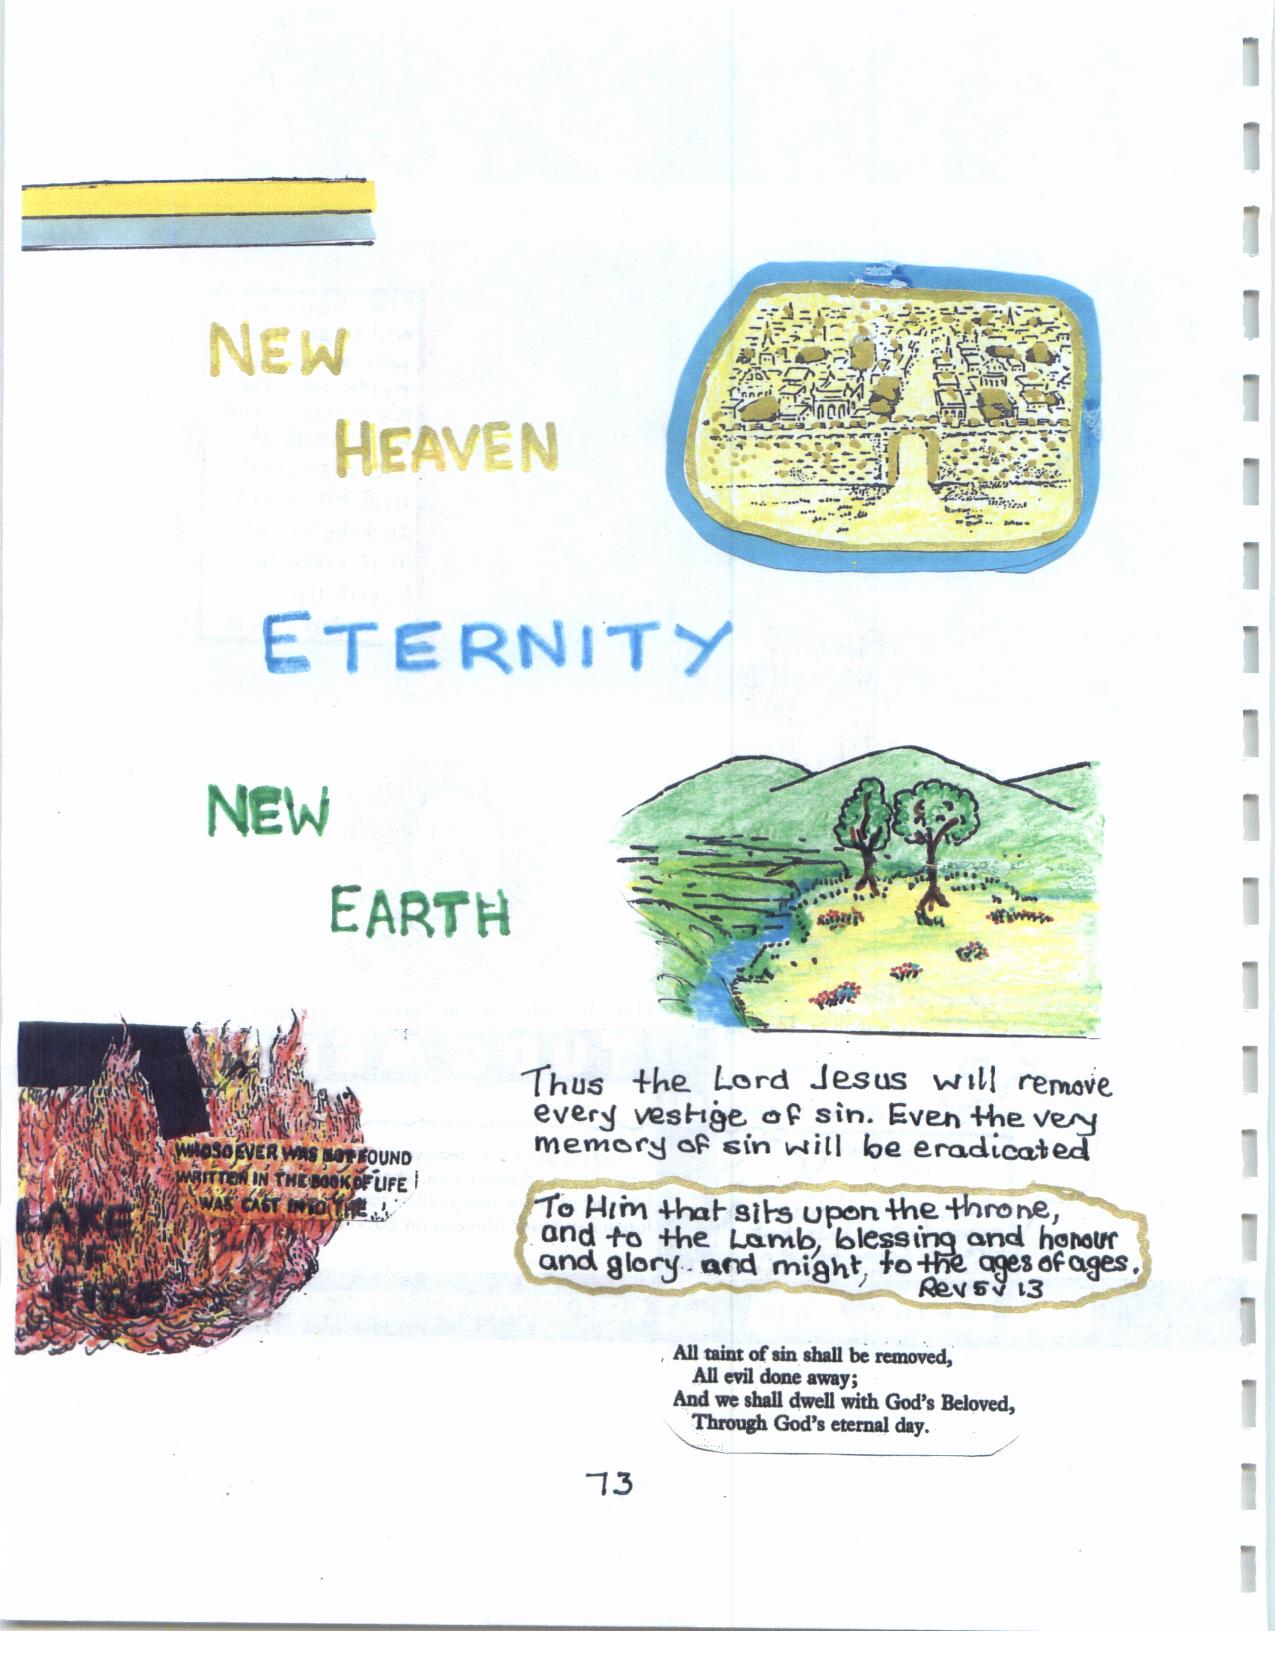 NEW
HEAVEN
ETERNITY
NEW
EARTH
WHOSOEVER WAS NOT FOUND
WRITTEN IN THE BOOK OF LIFE
WAS CAST INTO THE...
LAKE
OF
FIRE
Thus the Lord Jesus will remove
every vestige of sin. Even the very
memory of sin will be eradicated
To Him that sits upon the throne,
and to the Lamb, blessing and honour
and glory and might, to the ages of ages.
Rev 5 v 13
All taint of sin shall be removed,
All evil done away;
And we shall dwell with God's Beloved,
Through God's eternal day.
73